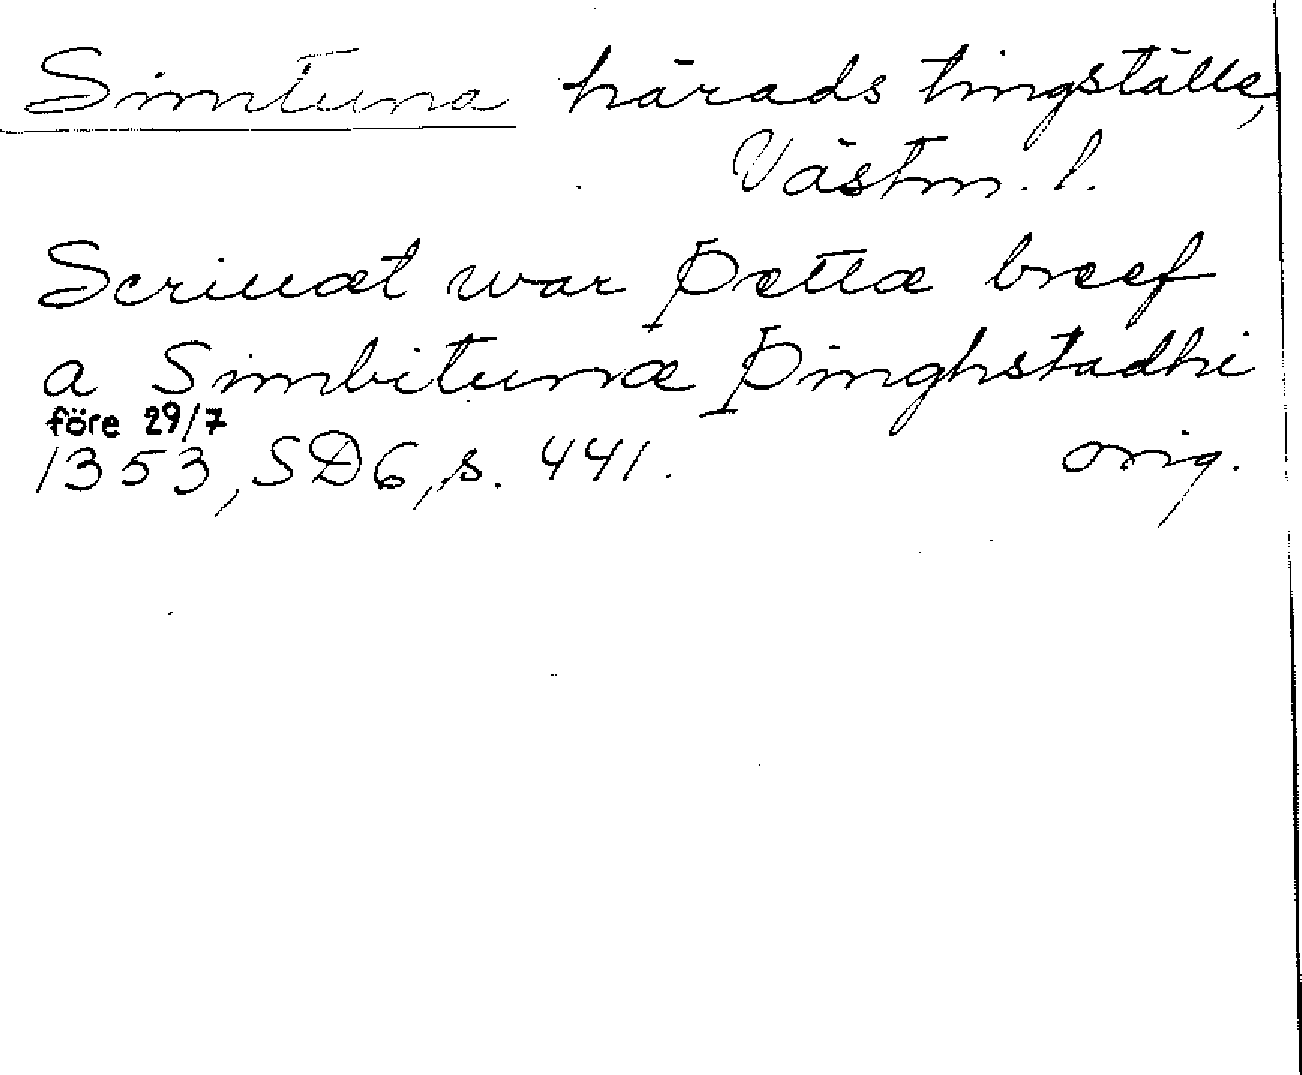 Simtuna härads tingställe,
Västm. l.
Scriuæt war þættæ breef
a Simbitunæ þinghstadhi
före 29/7
1353, SD6, s. 441. orig.